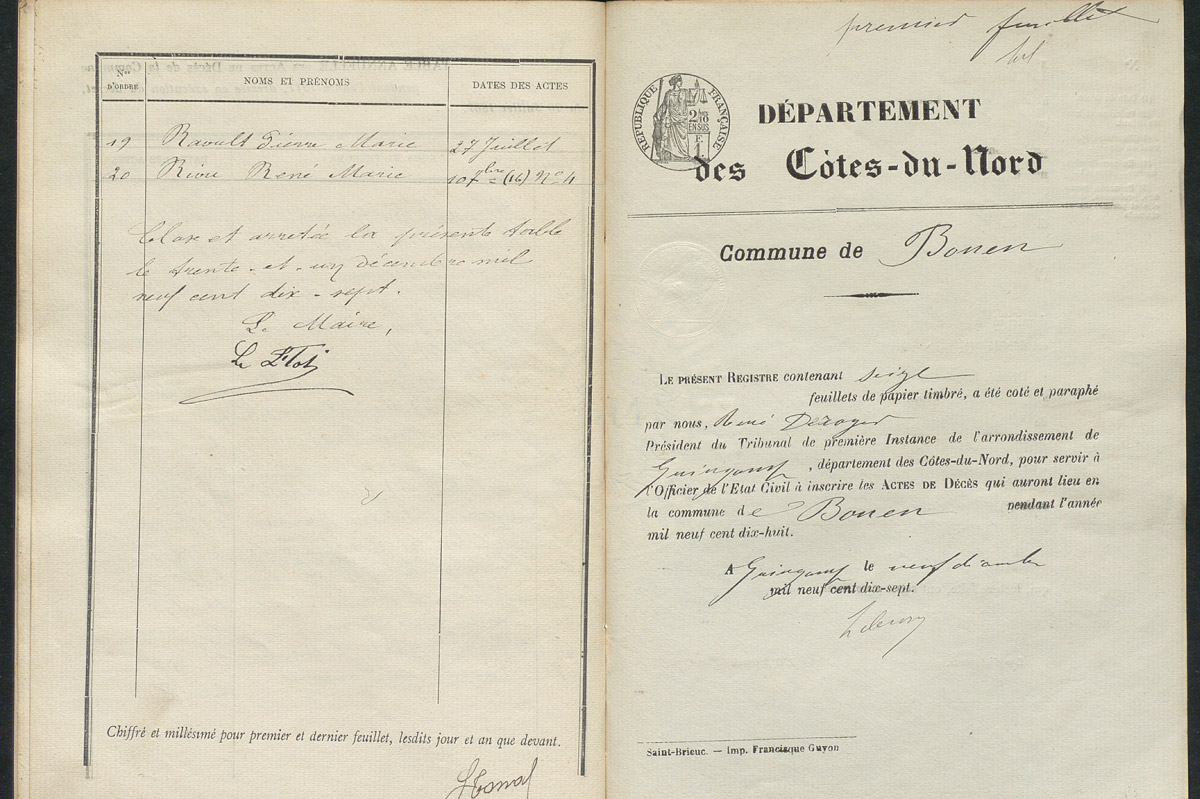 Nos
D'ORDRE
NOMS ET PRÉNOMS
DATES DES ACTES
19 Raoult Pierre Marie 27 Juillet
20 Riou René Marie 10 7bre (16) No 4
Clos et arrêtée la présente table
le trente-et-un décembre mil
neuf cent dix-sept.
Le Maire,
Chiffré et millésimé pour premier et dernier feuillet, lesdits jour et an que devant.
premier feuillet
RÉPUBLIQUE FRANÇAISE
2/10
EN SUS
F. 1
DÉPARTEMENT
des Côtes-du-Nord
Commune de Bonen
LE PRÉSENT REGISTRE contenant seize
feuillets de papier timbré, a été coté et paraphé
par nous, René
Président du Tribunal de première Instance de l'arrondissement de
Guingamp, département des Côtes-du-Nord, pour servir à
l'Officier de l'Etat Civil à inscrire les ACTES DE DÉCÈS qui auront lieu en
la commune de Bonen pendant l'année
mil neuf cent dix-huit.
A Guingamp le neuf
mil neuf cent dix-sept.
Saint-Brieuc. — Imp. Francisque Guyon